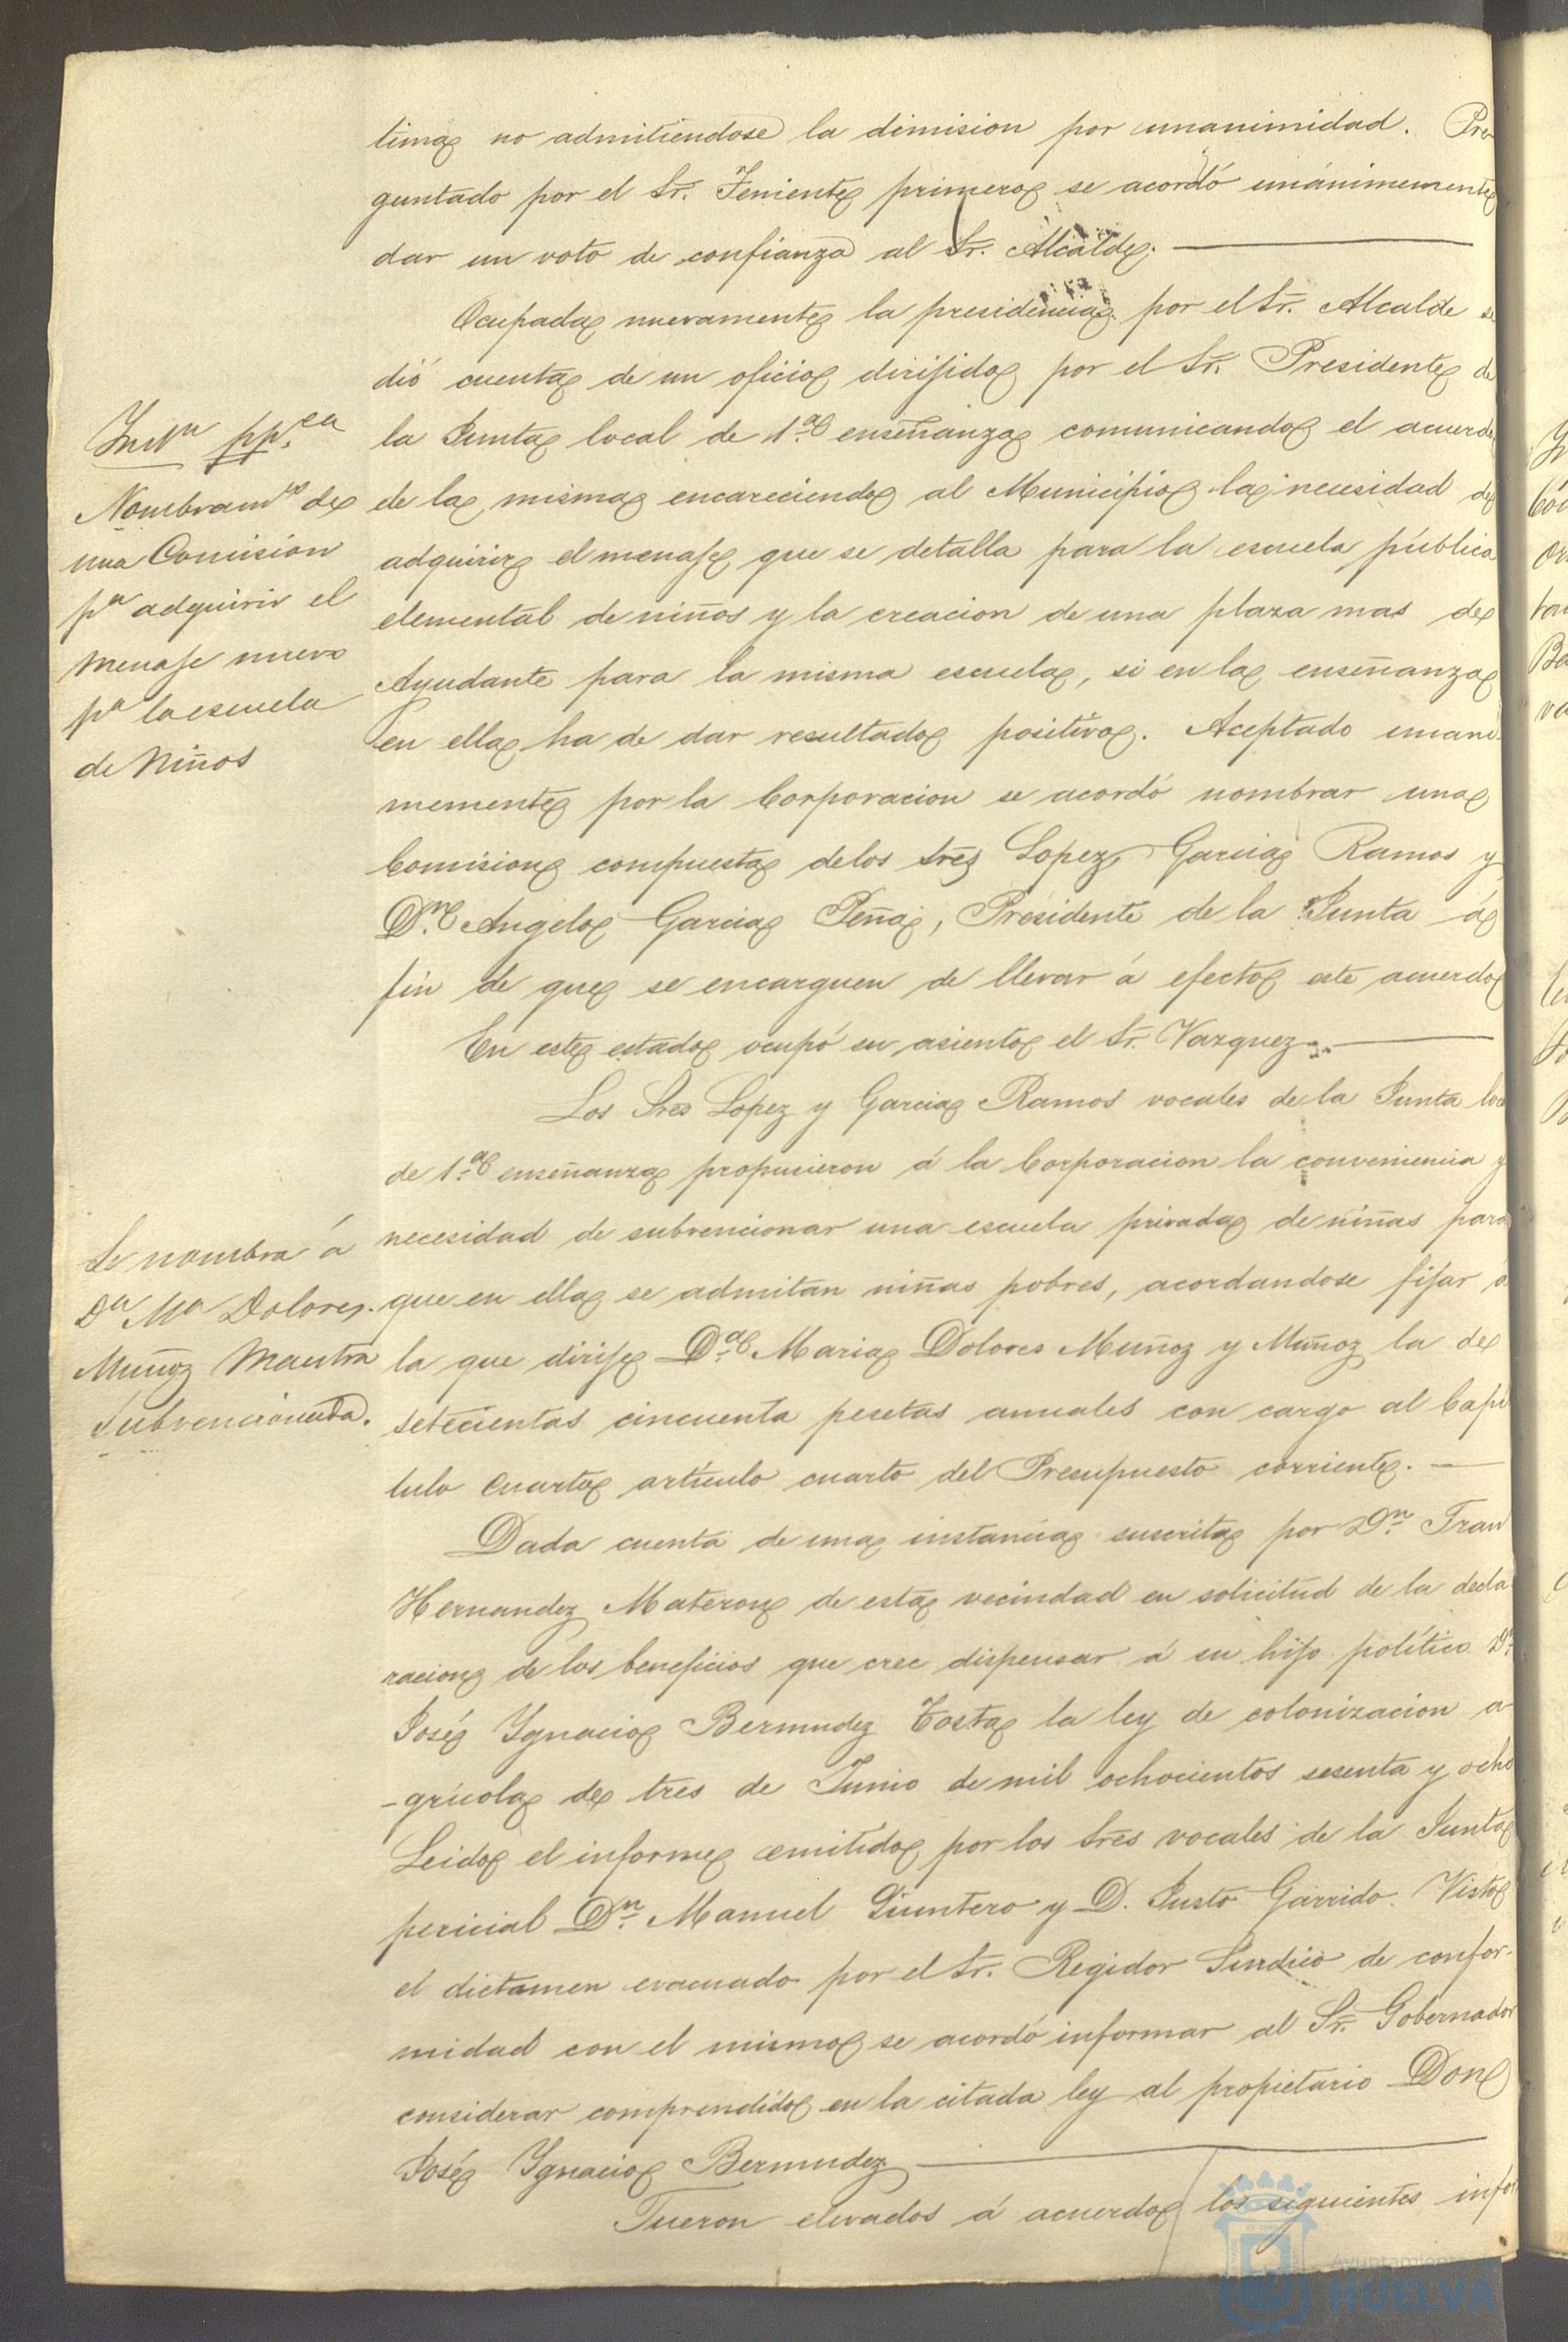 tima no admitiendose la dimision por unanimidad. Pre
guntado por el Sr. Teniente primero se acordó unánimemente
dar un voto de confianza al Sr. Alcalde.
Ocupada nuevamente la presidencia por el Sr. Alcalde se
dió cuenta de un oficio dirijido por el Sr. Presidente de
Inst.n pp.ca
la Junta local de 1.a enseñanza comunicando el acuerdo
Nombram.to de
una Comision
p.a adquirir el
menaje nuevo
p.a la escuela
de Niños
de la misma encareciendo al Municipio la necesidad de
adquirir el menaje que se detalla para la escuela pública
elemental de niños y la creacion de una plaza mas de
Ayudante para la misma escuela, si en la enseñanza
en ella ha de dar resultado positivo. Aceptado unani
memente por la Corporacion se acordó nombrar una
Comision compuesta de los Sres Lopez, Garcia Ramos y
D.n Angelo Garcia Peña, Presidente de la Junta á
fin de que se encarguen de llevar á efecto este acuerdo
En este estado ocupó su asiento el Sr. Vazquez.
Los Sres Lopez y Garcia Ramos vocales de la Junta loc
de 1.a enseñanza propusieron á la Corporacion la conveniencia y
necesidad de subvencionar una escuela privada de niñas para
Se nombra á
D.a M.a Dolores
Muñoz Maestra
Subvencionada.
que en ella se admitan niñas pobres, acordandose fijar a
la que dirije D.a Maria Dolores Muñoz y Muñoz la de
setecientas cincuenta pesetas anuales con cargo al Capi
tulo cuarto artículo cuarto del Presupuesto corriente.
Dada cuenta de una instancia suscrita por D.n Fran
Hernandez Materon de esta vecindad en solicitud de la decla
racion de los beneficios que cree dispensar á su hijo político D.n
José Ygnacio Bermudez Costa la ley de colonizacion a-
-grícola de tres de Junio de mil ochocientos sesenta y ocho
Leido el informe emitido por los Sres vocales de la Junta
pericial D.n Manuel Quintero y D. Justo Garrido. Visto
el dictamen evacuado por el Sr. Regidor Sindico de confor-
midad con el mismo se acordó informar al Sr. Gobernador
considerar comprendido en la citada ley al propietario Don
José Ygnacio Bermudez
Fueron elevados á acuerdo los siguientes infor
Ayuntamiento
HUELVA